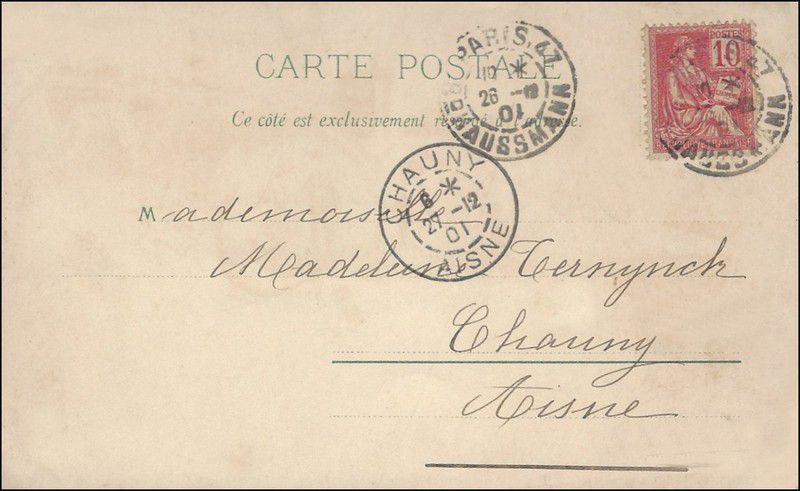 CARTE POSTALE
Ce côté est exclusivement réservé à l'adresse.
PARIS. 47
26 -12
01
HAUSSMANN
POSTES
10
47
CHAUNY
27 -12
01
AISNE
Mademoiselle
Madeleine Ternynck
Chauny
Aisne